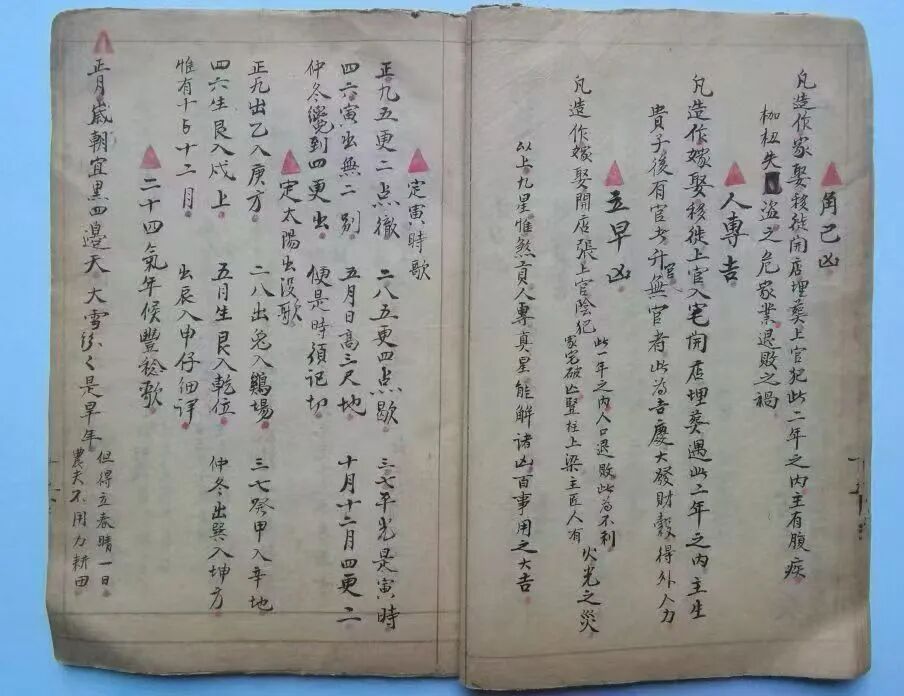 角己凶
凡造作嫁娶移徙開店埋葬上官犯此二年之內主有腹疾
枷杻失盜之危家業退敗之禍
人專吉
凡造作嫁娶移徙上官入宅開店埋葬遇此二年之內主生
貴子後有官者升官無官者此為吉慶大發財穀得外人力
立早凶
凡造作嫁娶開店張上官陰犯
此一年之內人口退敗此為不利
家宅破凶豎柱上梁主匠人有
火光之災
以上九星惟煞貢人專真星能解諸凶百事用之大吉
定寅時歌
正九五更二点徹 二八五更四点歇 三七平光是寅時
四六寅出無二別 五月日高三尺地 十月十二月四更二
仲冬纔到四更出 便是時須記切
定太陽出沒歌
正九出乙入庚方 二八出兔入鷄場 三七發甲入辛地
四六生艮入戌上 五月生艮入乾位 仲冬出巽入坤方
惟有十與十二月 出辰入申仔細詳
二十四氣年候豐稔歌
正月歲朝宜黑四邊天 大雪紛々是旱年
但得立春晴一日
農夫不用力耕田